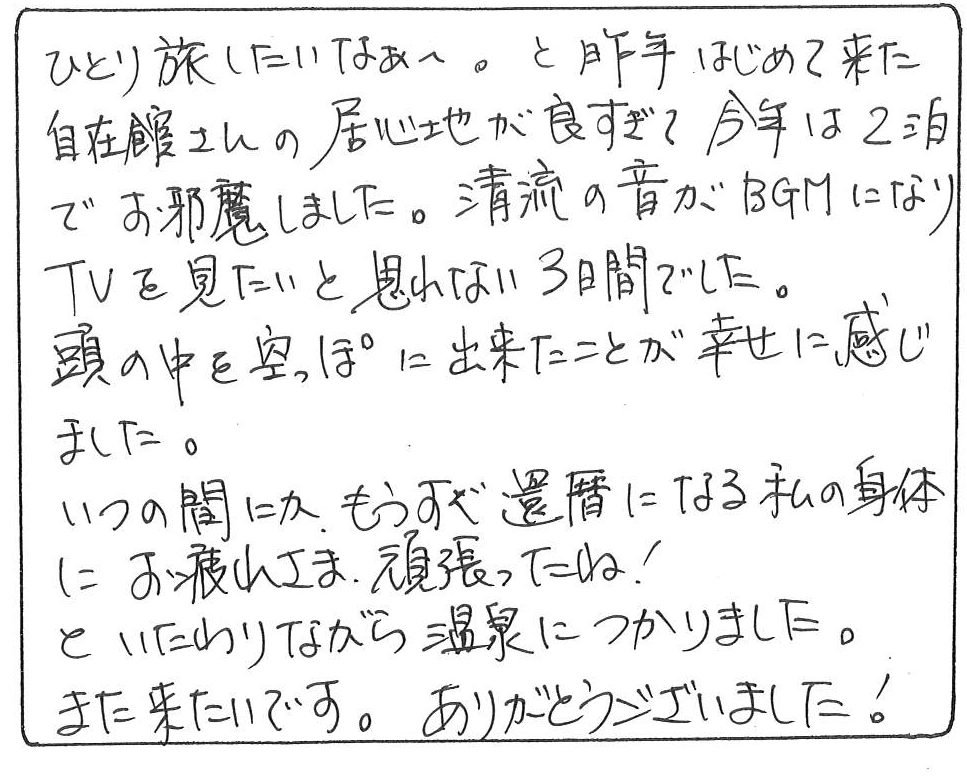 ひとり旅したいなぁ〜。と昨年はじめて来た
自在館さんの居心地が良すぎて今年は2泊
でお邪魔しました。清流の音がBGMになり
TVを見たいと思れない3日間でした。
頭の中を空っぽに出来たことが幸せに感じ
ました。
いつの間にか、もうすぐ還暦になる私の身体
にお疲れさま、頑張ったね！
といたわりながら温泉につかりました。
また来たいです。ありがとうございました！